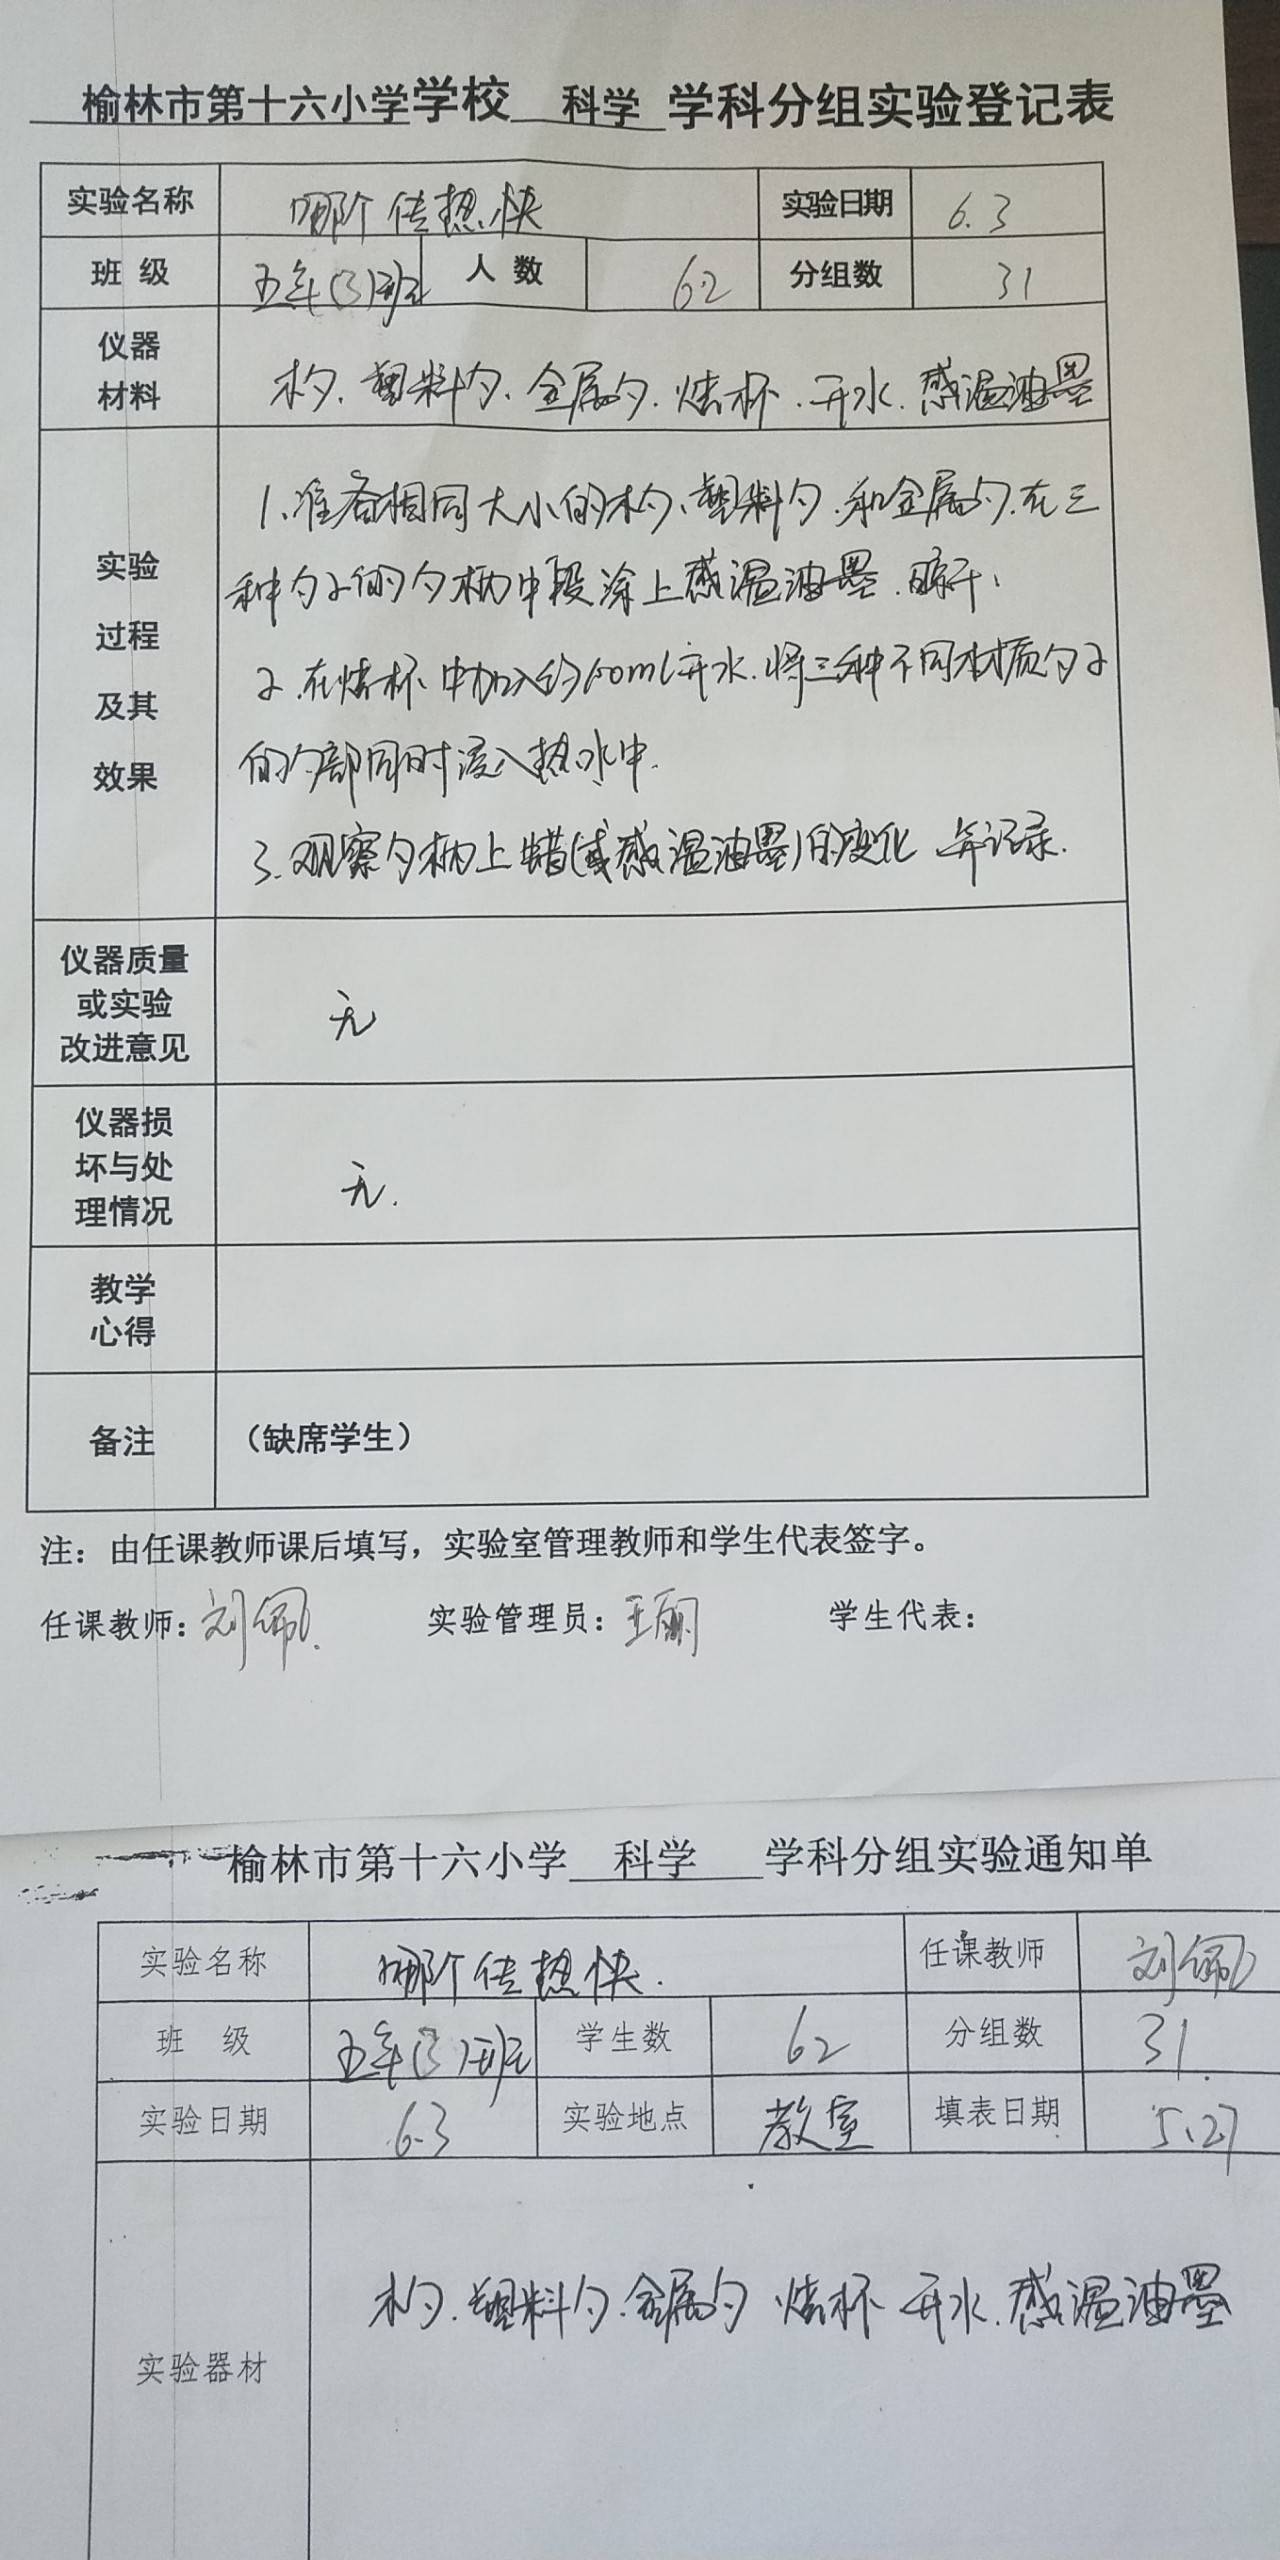 榆林市第十六小学学校 科学 学科分组实验登记表
实验名称 哪个传热快 实验日期 6.3
班 级 五年(3)班 人 数 62 分组数 31
仪器
材料 木勺、塑料勺、金属勺、烧杯、开水、感温油墨
实验
过程
及其
效果
1、准备相同大小的木勺、塑料勺、和金属勺.在三
种勺子的勺柄中段涂上感温油墨.晾干、
2.在烧杯中加入约100ml开水.将三种不同材质勺子
的勺部同时浸入热水中.
3.观察勺柄上蜡(或感温油墨)的变化 并记录.
仪器质量
或实验
改进意见 无
仪器损
坏与处
理情况 无.
教学
心得
备注 （缺席学生）
注：由任课教师课后填写，实验室管理教师和学生代表签字。
任课教师：刘佩 实验管理员：王丽 学生代表：
榆林市第十六小学 科学 学科分组实验通知单
实验名称 哪个传热快. 任课教师 刘佩
班 级 五年(3)班 学生数 62 分组数 31.
实验日期 6.3 实验地点 教室 填表日期 5.27
实验器材 木勺.塑料勺.金属勺 烧杯 开水.感温油墨